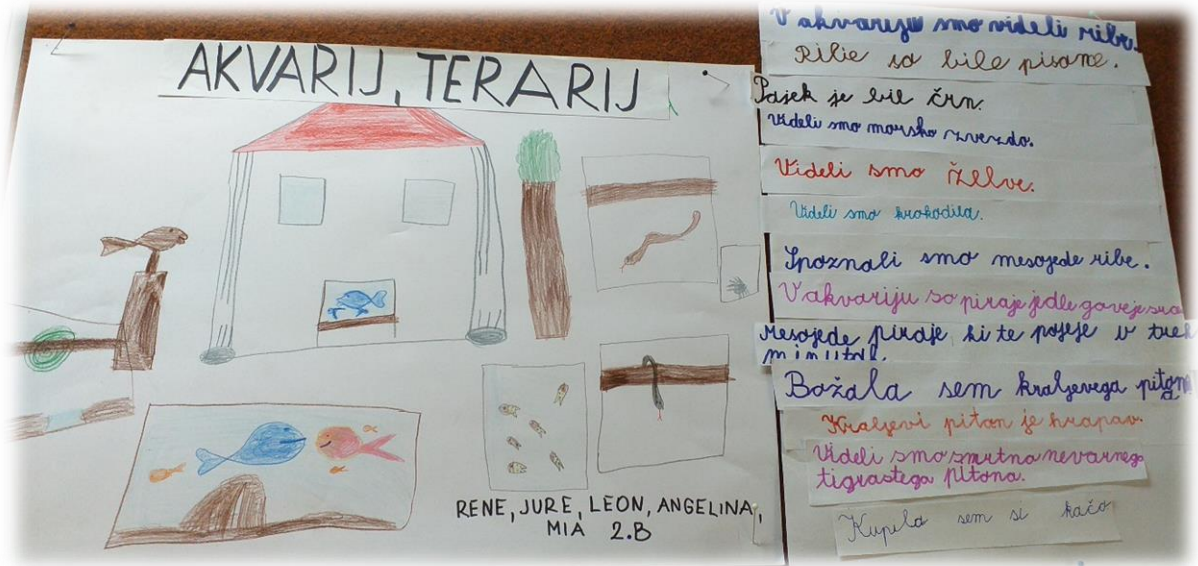 AKVARIJ, TERARIJ
RENE, JURE, LEON, ANGELINA,
MIA 2.B
V akvariju smo videli ribe.
Ribe so bile pisane.
Pajek je bil črn.
Videli smo morsko zvezdo.
Videli smo želve.
Videli smo krokodila.
Spoznali smo mesojede ribe.
V akvariju so piraje jedle goveje srce
Mesojede piraje bi te pojeje v treh
minutah.
Božala sem kraljevega pitona
Kraljevi piton je hrapav.
Videli smo smrtno nevarnega
tigrastega pitona.
Kupila sem si kačo